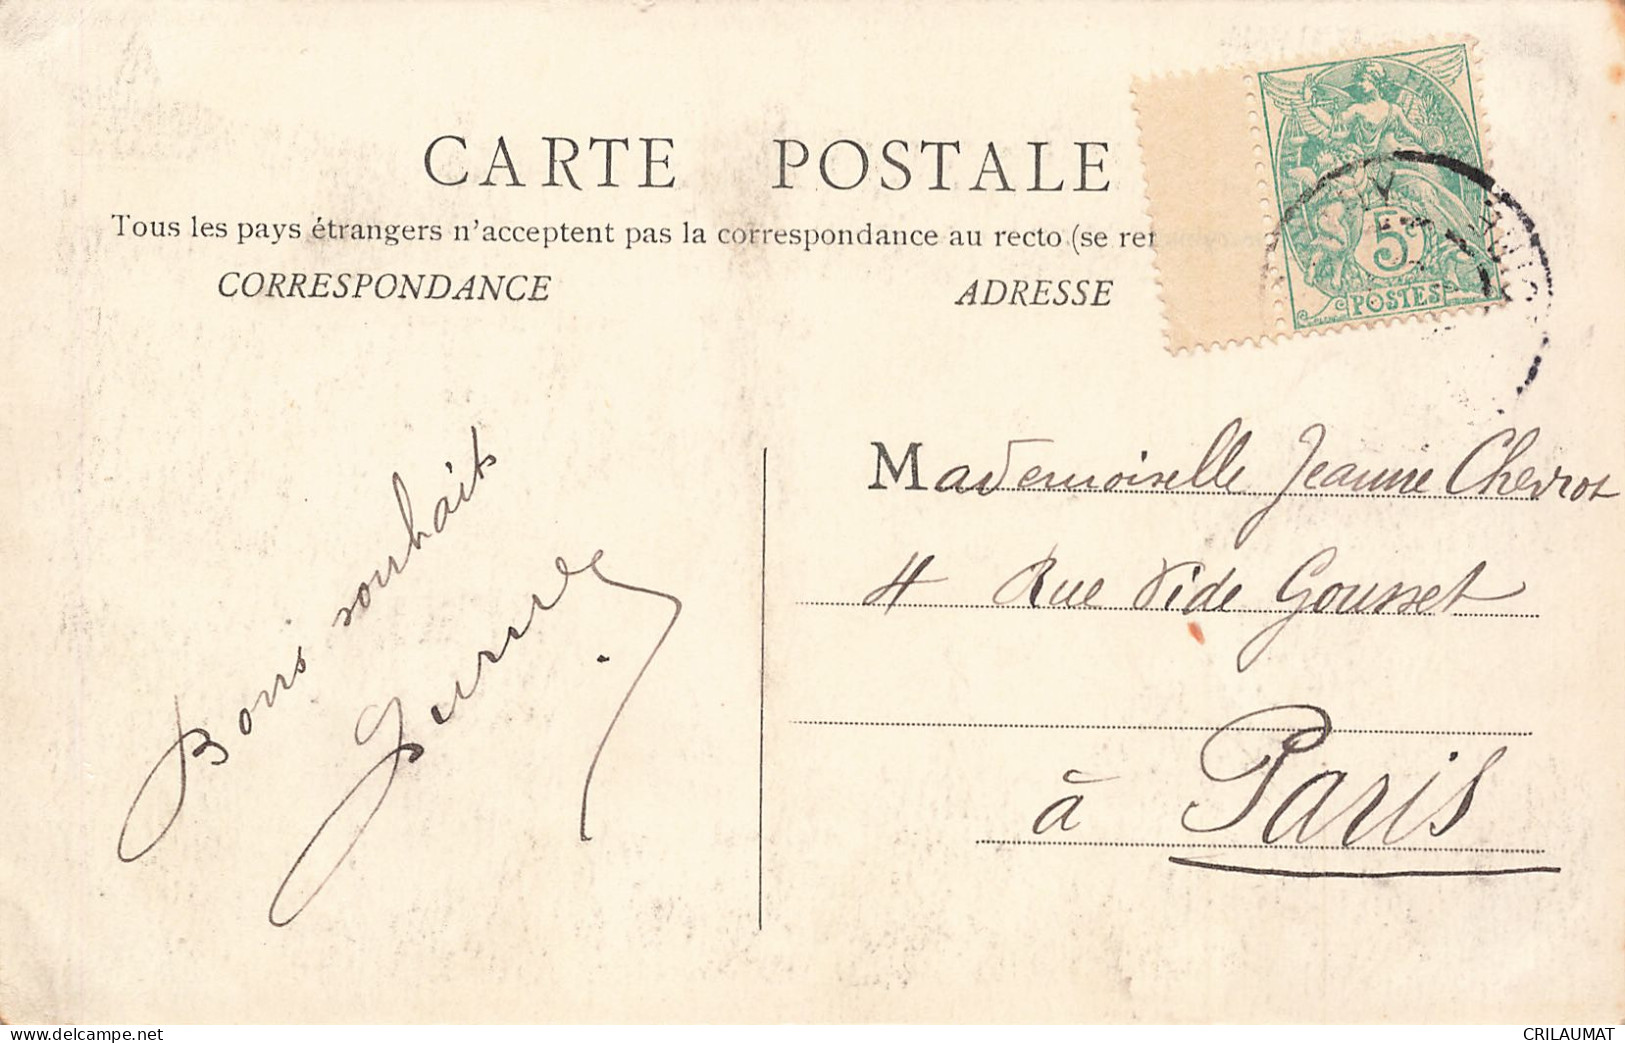 CARTE POSTALE
Tous les pays étrangers n'acceptent pas la correspondance au recto (se re
CORRESPONDANCE
ADRESSE
5
POSTES
Bons souhaits
Mademoiselle Jeanne Chevrot
4 Rue Vide Gousset
à Paris
www.delcampe.net
CRILAUMAT